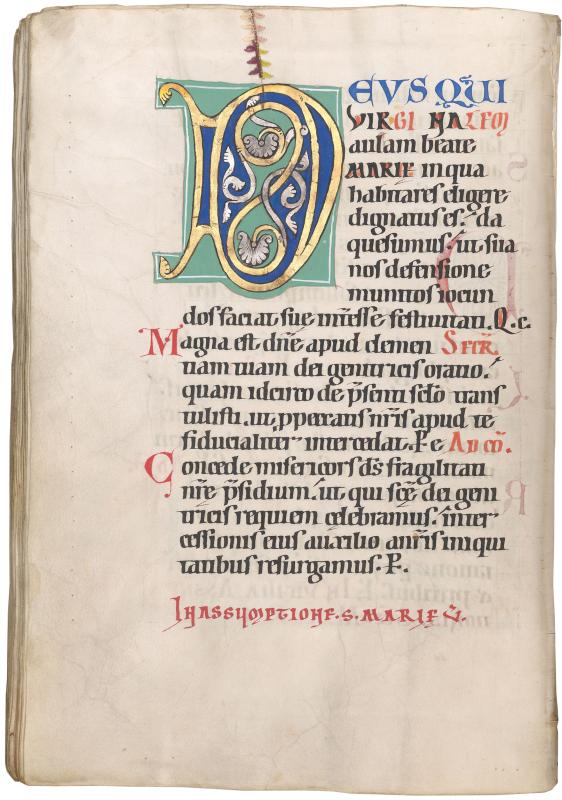 DEVS QUI
VIRGINALEM
aulam beate
MARIE in qua
habitares eligere
dignatus es. da
quesumus. ut sua
nos defensione
munitos iocun
dos faciat sue int̄esse festiuitati. Q. c.
Magna est dn̄e apud clemen SECR̄.
tiam tuam dei genitricis oratio.
quam idcirco de p̄senti sc̄lo trans
tulisti. ut p peccatis nr̄is apud te
fiducialiter intercedat. P e AD CŌ.
Concede misericors d̄s fragilitati
nr̄e p̄sidium. ut qui sc̄e dei geni
tricis requiem celebramus. inter
cessionis eius auxilio a nr̄is iniqui
tatibus resurgamus. P.
IN ASSUMPTIONE. S. MARIE V̄.